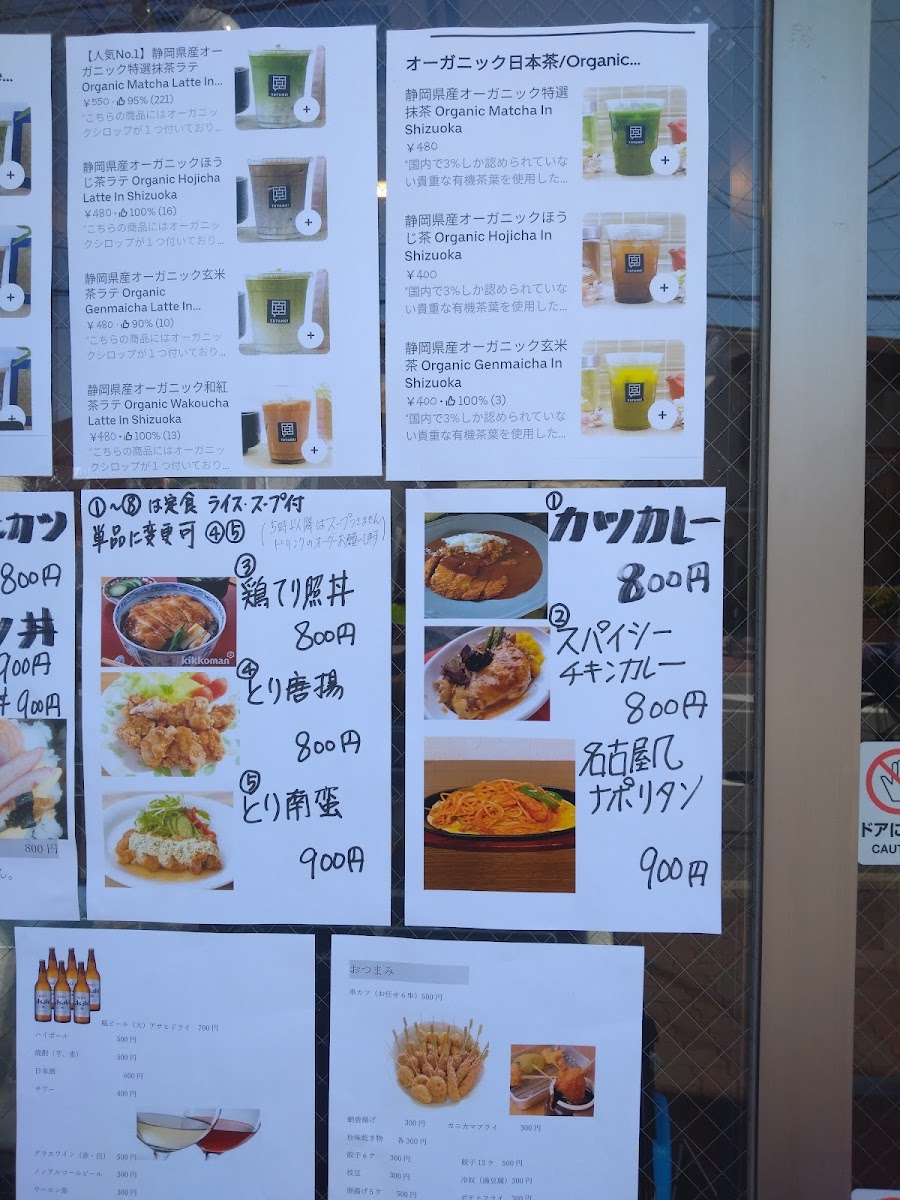 【人気No.1】静岡県産オー
ガニック特選抹茶ラテ
Organic Matcha Latte In...
￥550・95% (221)
"こちらの商品にはオーガニッ
クシロップが１つ付いており...
静岡県産オーガニックほう
じ茶ラテ Organic Hojicha
Latte In Shizuoka
￥480・100% (16)
"こちらの商品にはオーガニッ
クシロップが１つ付いており...
静岡県産オーガニック玄米
茶ラテ Organic
Genmaicha Latte In...
￥480・90% (10)
"こちらの商品にはオーガニッ
クシロップが１つ付いており...
静岡県産オーガニック和紅
茶ラテ Organic Wakoucha
Latte In Shizuoka
￥480・100% (13)
"こちらの商品にはオーガニッ
クシロップが１つ付いており...
オーガニック日本茶/Organic...
静岡県産オーガニック特選
抹茶 Organic Matcha In
Shizuoka
￥480
"国内で3%しか認められていな
い貴重な有機茶葉を使用した...
静岡県産オーガニックほう
じ茶 Organic Hojicha In
Shizuoka
￥400
"国内で3%しか認められていな
い貴重な有機茶葉を使用した...
静岡県産オーガニック玄米
茶 Organic Genmaicha In
Shizuoka
￥400・100% (3)
"国内で3%しか認められていな
い貴重な有機茶葉を使用した...
カツ
800円
丼
900円
900円
800円
①〜⑧は定食 ライス・スープ付
単品に変更可 ④⑤
(5時以降はスープつきません
ドリンクのオーダーお願いします)
③
鶏てり照丼
800円
kikkoman
④
とり唐揚
800円
⑤
とり南蛮
900円
①
カツカレー
800円
②
スパイシー
チキンカレー
800円
名古屋風
ナポリタン
900円
ドアに
CAUT
瓶ビール（大）アサヒドライ 700円
ハイボール 500円
焼酎（芋、麦） 500円
日本酒 600円
サワー 400円
グラスワイン（赤・白） 500円
ノンアルコールビール 300円
ウーロン茶 300円
おつまみ
串カツ（お任せ6串）500円
鶏唐揚げ 300円 カニカマフライ 300円
珍味乾き物 各300円
餃子6ケ 300円 餃子12ケ 500円
枝豆 300円 冷奴（湯豆腐）300円
唐揚げ5ケ 500円 ポテトフライ 300円